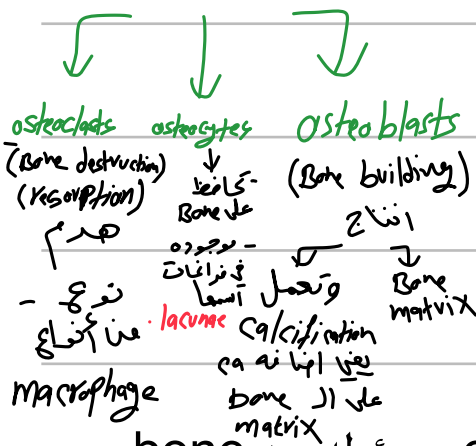 osteoclasts
(Bone destruction)
(resorption)
هدم
- نوع
من أنواع
macrophage
osteocytes
- تحافظ
على Bone
- موجوده
في فراغات
اسمها
lacunae
osteoblasts
(Bone building)
انتاج
Bone
matrix
وتعمل
calcification
يعني اضافة ca
على ال bone
matrix
bone